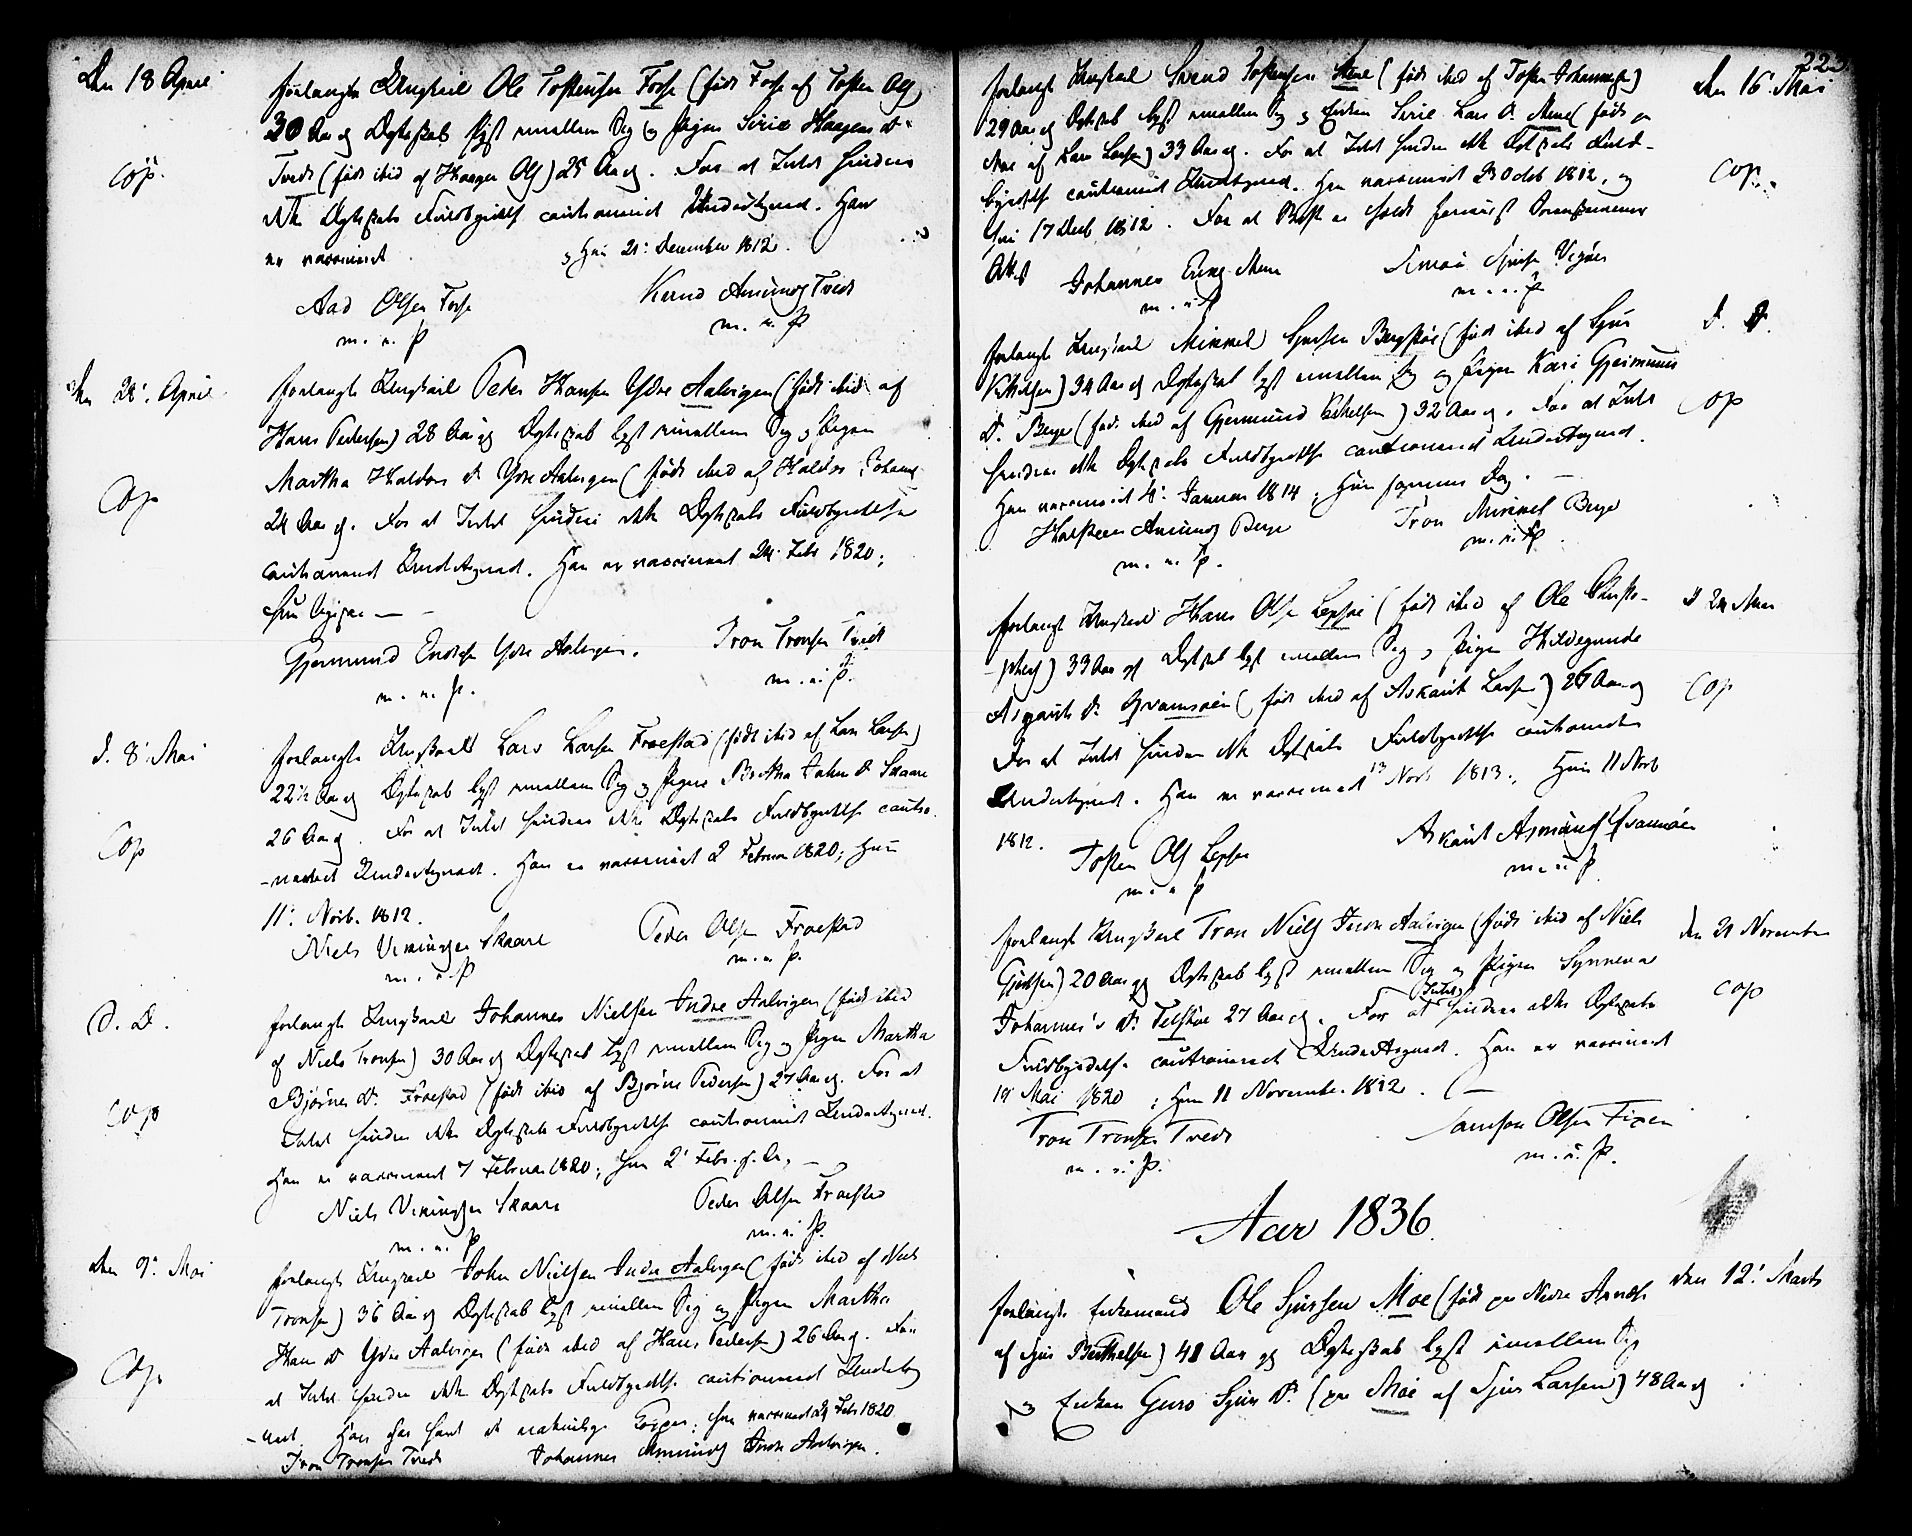 Den 18 April
forlangte Ungkarl Ole Tostensen Fosse (født Fosse af Tosten Ols)
30 Aar gl Ægteskab lyst imellem Sig og Pigen Sirie Haagens D.
Tvedt (født ibid af Haagen Ols) 25 Aar gl. For at Intet hindrer
cop.
dette Ægteskabs Fuldbyrdelse cautionerede Undertegnede. Han
er vaccineret
og Hun 21. December 1812.
Aad Olsen Fosse
m. n. P
Amund Tvedt
m. n. P
April
forlangte Ungkarl Peder Hansen Ydre Aalvigen (født ibid af
Hans Pedersen) 28 Aar gl Ægteskab lyst imellem Sig og Pigen
Martha Haldors D. Ydre Aalvigen (født ibid af Haldor Johans
Cop
24 Aar gl. For at Intet hindrer dette Ægteskabs Fuldbyrdelse
cautionerede Undertegnede. Han er vaccineret 24. Febr 1820;
Hun ligesaa —
Gjermund Ydre Aalvigen.
m. n. P.
Tron Tronsen Tvedt
m. n. P.
d. 8 Mai
forlangte Ungkarl Lars Larsen Fraestad (født ibid af Lars Larsen)
22½ Aar gl Ægteskab lyst imellem Sig og Pigen Brita Johns D. Skaare
26 Aar gl. For at Intet hindrer dette Ægteskabs Fuldbyrdelse cautio-
Cop
-nerede Undertegnede. Han er vaccineret 2 Februar 1820; Hun
11. Novb. 1812.
Niels Vikingsen Skaare
m. n. P
Peder Olsen Fraestad
m. n. P.
d. D.
forlangte Ungkarl Johannes Nielsen Indre Aalvigen (født ibid
af Niels Tronsen) 30 Aar gl Ægteskab lyst imellem Sig og Pigen Martha
Bjørnes D. Fraestad (født ibid af Bjørne Pedersen) 27 Aar gl. For at
cop
Intet hindrer dette Ægteskabs Fuldbyrdelse cautionerede Undertegnede.
Han er vaccineret 7 Februar 1820; Hun 2 Febr. s. A. —
Niels Vikingsen Skaare
m. n. P
Peder Olsen Fraestad
m. n. P.
den 9. Mai
forlangte Ungkarl John Nielsen Indre Aalvigen (født ibid af Niels
Tronsen) 36 Aar gl Ægteskab lyst imellem Sig og Pigen Martha
Hans D Ydre Aalvigen (født ibid af Hans Pedersen) 26 Aar gl. For
Cop.
at Intet hindrer dette Ægteskabs Fuldbyrdelse cautionerede Underteg
-nede. Han har havt de naturlige Kopper; Hun vaccineret 24 Febr 1820
Tron Tronsen Tvedt
Johannes Amunds Indre Aalvigen.
223
den 16. Mai
forlangte Ungkarl Svend Tostensen Mene (født ibid af Tosten Johannesen)
29 Aar gl Ægteskab lyst imellem Sig og Enken Sirie Lars D. Mene (født
af Lars Larsen) 33 Aar gl. For at Intet hindrer dette Ægteskabs Fuld-
byrdelse cautionerede Undertegnede. Han vaccineret 23 Octb 1812, og
cop.
Hun 17 Decb 1812. For at Skifte er holdt
Attest
Johannes Mene
m. n. P
m. n. P
d. D.
forlangte Ungkarl Mikkel Sjursen Berge (født ibid af Sjur
) 34 Aar gl Ægteskab lyst imellem Sig og Pigen Kari Gjermunds
D. Berge (født ibid af Gjermund ) 32 Aar gl. For at Intet
cop
hindrer dette Ægteskabs Fuldbyrdelse cautionerede Undertegnede.
Han vaccineret 4. Januar 1814; Hun samme Dag. —
Amunds Berge
m. n. P.
Tron Mikkels Berge
m. n. P.
d 24 Mai
forlangte Ungkarl Hans Olsen Lepsøe (født ibid af Ole Christo-
-phers) 33 Aar gl Ægteskab lyst imellem Sig og Pigen Hildegunde
Asgauts D. Qvamsøen (født ibid af Askaut Larsen) 26 Aar gl
Cop
For at Intet hindrer dette Ægteskabs Fuldbyrdelse cautionerede
Undertegnede. Han er vaccineret 13 Novb 1813; Hun 11 Novb
1812.
Tosten Ols Lepsøe
m. n. P
Askaut Asmunds Qvamsøen
m. n. P.
den 21 November
forlangte Ungkarl Tron Niels Indre Aalvigen (født ibid af Niels
) 20 Aar gl Ægteskab lyst imellem Sig og Pigen Synneva
Johannes's D. Telstøe 27 Aar gl. For at Intet hindrer dette Ægteskabs
cop
Fuldbyrdelse cautionerede Undertegnede. Han er vaccineret
19 Mai 1820; Hun 11 November 1812. —
Tron Tronsen Tvedt
m. n. P.
Samson Olsen Fixen
m. n. P.
Aar 1836.
den 12. Marts
forlangte Enkemand Ole Sjursen Moe (født paa Nedre
af Sjur Berthelsen) 41 Aar gl Ægteskab lyst imellem Sig
og Enken Guro Sjurs D. (paa Moe af Sjur Larsen) 48 Aar gl